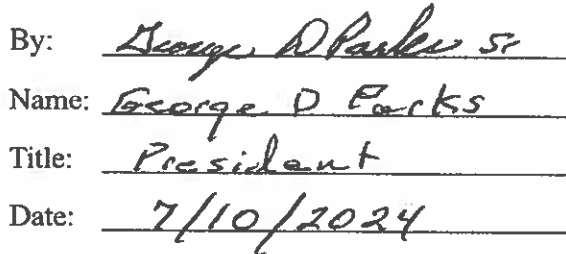 By: George D Parks Sr
Name: George D Parks
Title: President
Date: 7/10/2024